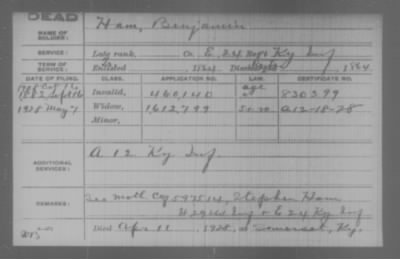 DEAD
NAME OF SOLDIER: Ham, Benjamin
SERVICE: Late rank, Co. E, 24 Regt Ky Inf
TERM OF SERVICE: Enlisted 1861 Discharged 1864
DATE OF FILING. CLASS. APPLICATION NO. LAW. CERTIFICATE NO.
Invalid, 460,140 age 830399
1928 May 7 Widow, 1612,799 A12-18-28
Minor,
ADDITIONAL SERVICES: A 12 Ky Inf
REMARKS: See Moth C 597514, Stephen Ham
E 24 Ky Inf
Died Apr 11 1928, at Somerset, Ky.